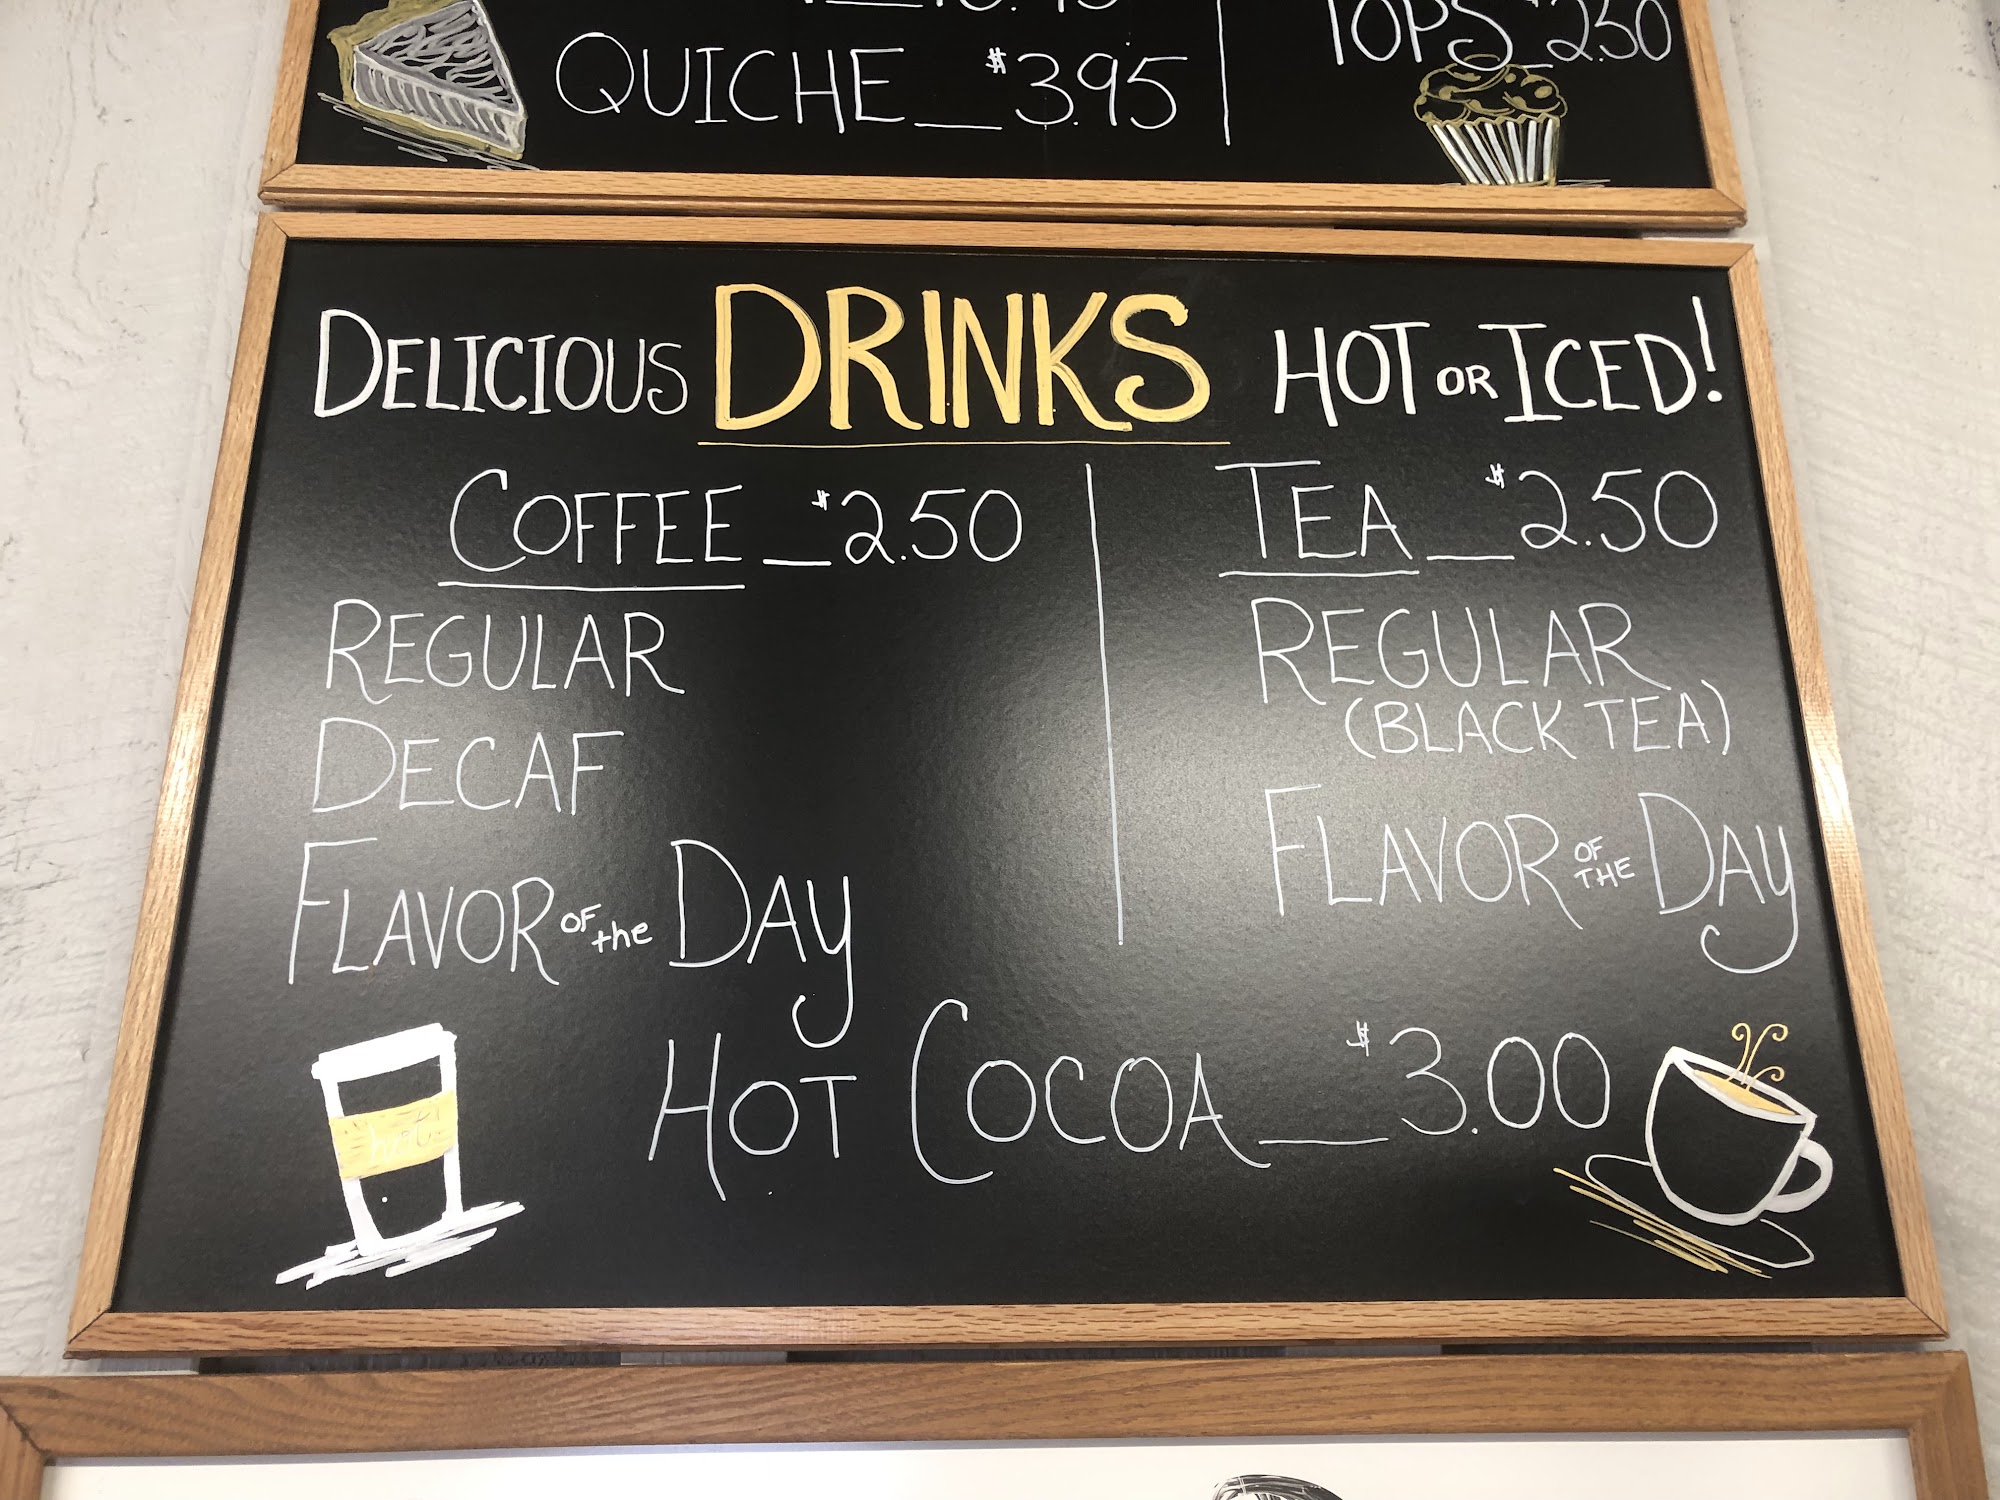 QUICHE__$3.95
TOPS_$2.50
DELICIOUS DRINKS HOT OR ICED!
COFFEE_$2.50
REGULAR
DECAF
FLAVOR OF the DAY
TEA_$2.50
REGULAR
(BLACK TEA)
FLAVOR OF THE DAY
HOT COCOA__$3.00
hot